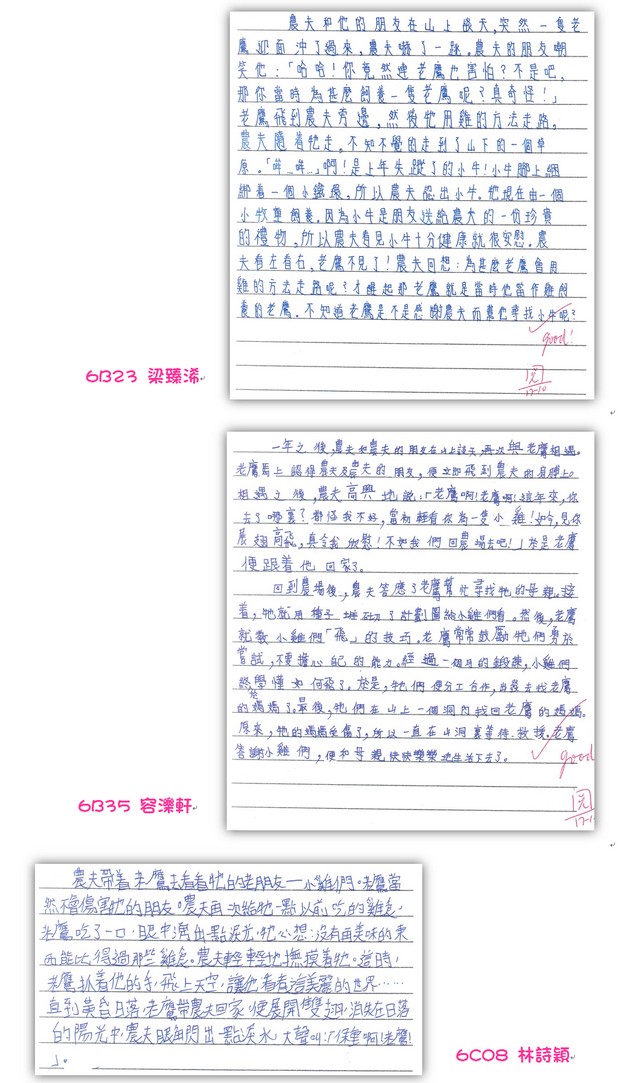 農夫和他的朋友在山上談天。突然一隻老
鷹迎面沖了過來,農夫嚇了一跳。農夫的朋友嘲
笑他:「哈哈!你竟然連老鷹也害怕?不是吧,
那你當時為甚麼飼養一隻老鷹呢?真奇怪!」
老鷹飛到農夫旁邊,然後牠用雞的方法走路。
農夫隨着牠走。不知不覺的走到了山下的一個草
原。「哞……哞……」啊!是上年失蹤了的小牛!小牛腳上綑
綁着一個小鐵環,所以農夫認出小牛。牠現在由一個
小牧童飼養。因為小牛是朋友送給農夫的一份珍貴
的禮物,所以農夫看見小牛十分健康就很安慰。農
夫看左看右,老鷹不見了!農夫回想:為甚麼老鷹會用
雞的方法走路呢?才醒起那老鷹就是當時他當作雞飼
養的老鷹。不知道老鷹是不是感謝農夫而幫他尋找小牛呢?
good!
閱
17-10
6B23 梁臻浠
一年之後,農夫和農夫的朋友在山上談天,再次與老鷹相遇。
老鷹馬上認得農夫及農夫的朋友,便立即飛到農夫的身體上。
相遇之後,農夫高興地說:「老鷹啊!老鷹啊!這年來,你
去了哪裏?都怪我不好,當初輕看你為一隻小雞!如今,見你
展翅高飛,真令我欣慰!不如我們回農場去吧!」於是老鷹
便跟着他回家了。
回到農場後,農夫答應了老鷹幫忙尋找牠的母親。接
着,牠就用種子堆砌了計劃圖給小雞們看。然後,老鷹
就教小雞們「飛」的技巧。老鷹常常鼓勵牠們勇於
嘗試,不要擔心自己的能力。經過一個月的鍛練,小雞們
終學懂如何飛了。於是,牠們便分工合作,出發去找老鷹
的媽媽了。最後,牠們在山上一個洞內找回老鷹的媽媽。
原來,牠的媽媽受傷了,所以一直在山洞裏等待救援。老鷹
答謝小雞們,便和母親快快樂樂地生活下去了。
good
閱
17-10
6B35 容濼軒
農夫帶着老鷹去看看牠的老朋友——小雞們。老鷹當
然不會傷害牠的朋友。農夫再次給牠一點以前吃的雞食。
老鷹吃了一口,眼中湧出點淚光,牠心想:沒有再美味的東
西能比得過那些雞食。農夫輕輕地撫摸着牠。這時,
老鷹抓着他的手,飛上天空,讓他看看這美麗的世界……
直到黃昏日落,老鷹帶農夫回家,便展開雙翅,消失在日落
的陽光中,農夫眼角閃出一點淚水,大聲叫:「保重啊!老鷹!
」。
6C08 林詩穎